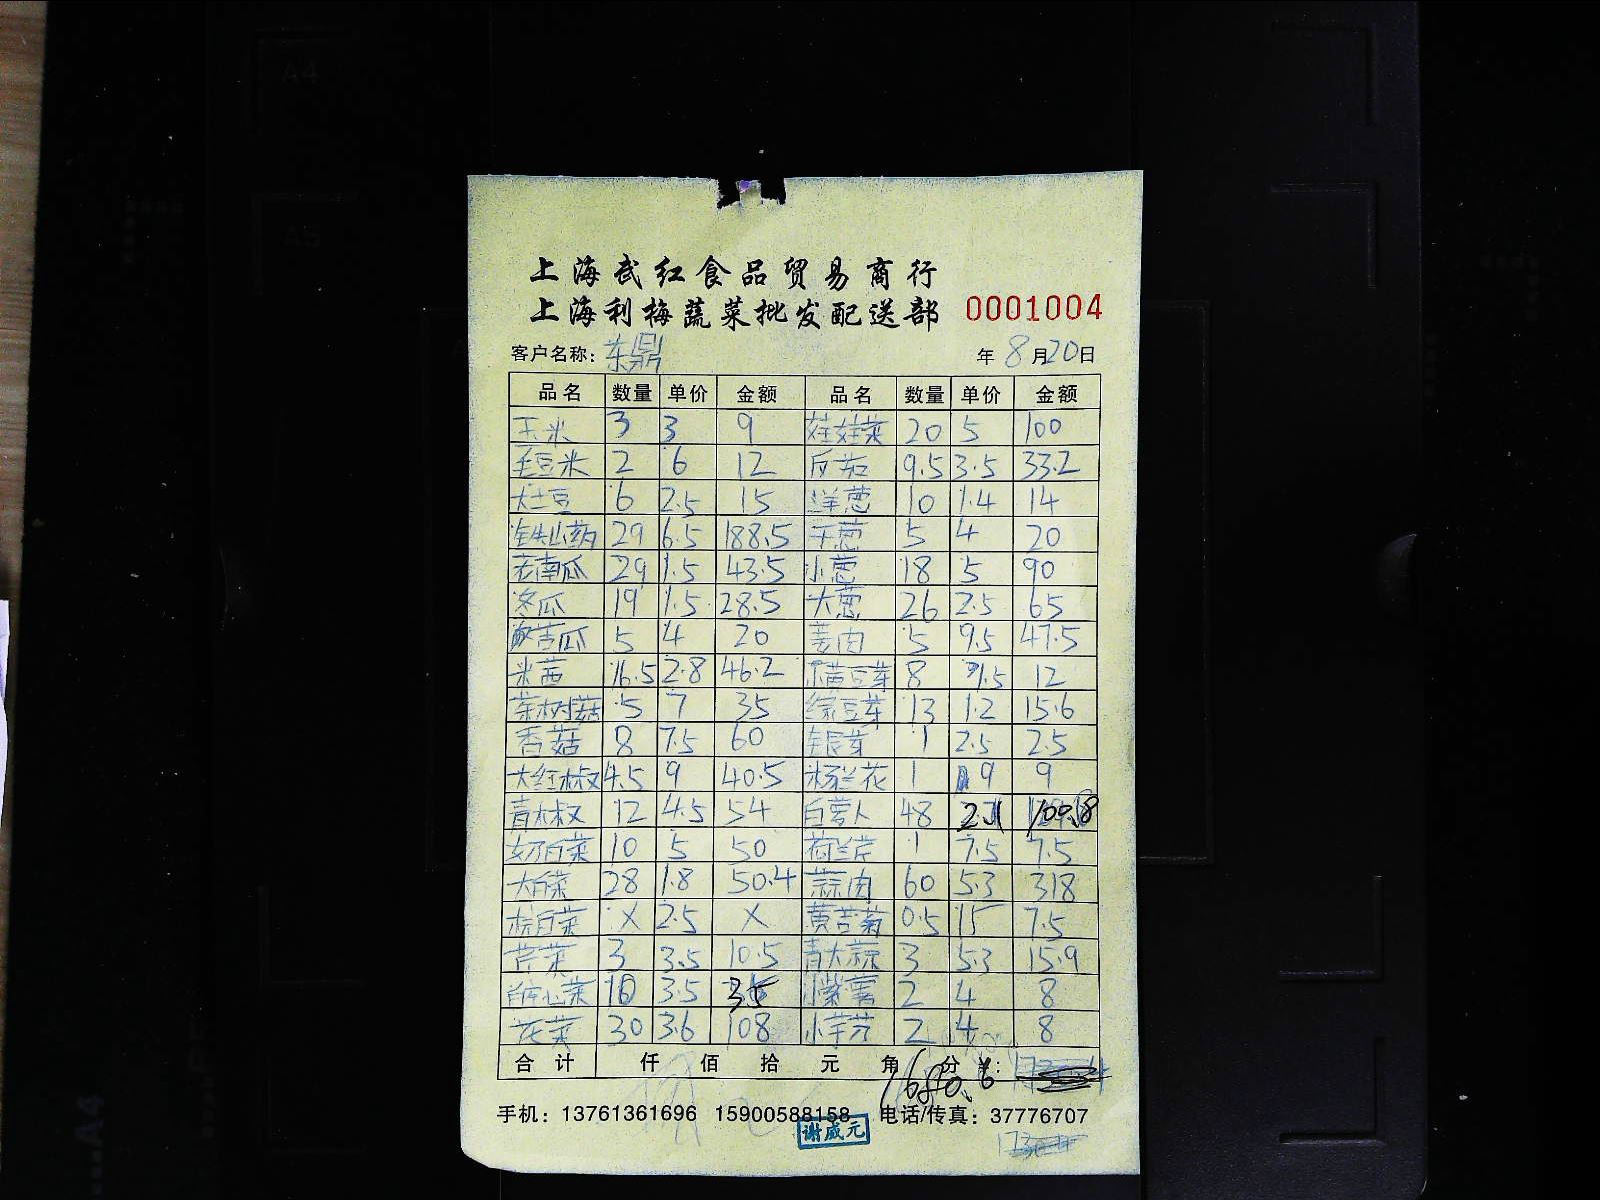 上海武红食品贸易商行
上海利梅蔬菜批发配送部 0001004
客户名称: 东鼎 年 8 月 20 日
品名 数量 单价 金额 品名 数量 单价 金额
玉米 3 3 9 娃娃菜 20 5 100
毛豆米 2 6 12 反茄 9.5 3.5 33.2
大土豆 6 2.5 15 洋葱 10 1.4 14
铁山药 29 6.5 188.5 干葱 5 4 20
老南瓜 29 1.5 43.5 小葱 18 5 90
冬瓜 19 1.5 28.5 大葱 26 2.5 65
苦瓜 5 4 20 姜肉 5 9.5 47.5
米茜 16.5 2.8 46.2 黄豆芽 8 1.5 12
茶树菇 5 7 35 绿豆芽 13 1.2 15.6
香菇 8 7.5 60 银芽 1 2.5 2.5
大红椒 4.5 9 40.5 杨兰花 1 9 9
青椒 12 4.5 54 白萝人 48 2.1 100.8
奶白菜 10 5 50 荷兰芹 1 7.5 7.5
大白菜 28 1.8 50.4 蒜肉 60 5.3 318
白菜 X 2.5 X 黄苦菊 0.5 15 7.5
芹菜 3 3.5 10.5 青大蒜 3 5.3 15.9
心菜 10 3.5 35 小紫薯 2 4 8
花菜 30 3.6 108 小芋艿 2 4 8
合计 仟 佰 拾 元 角 分 ¥: 1680.6
手机: 13761361696 15900588158 电话/传真: 37776707
谢威元